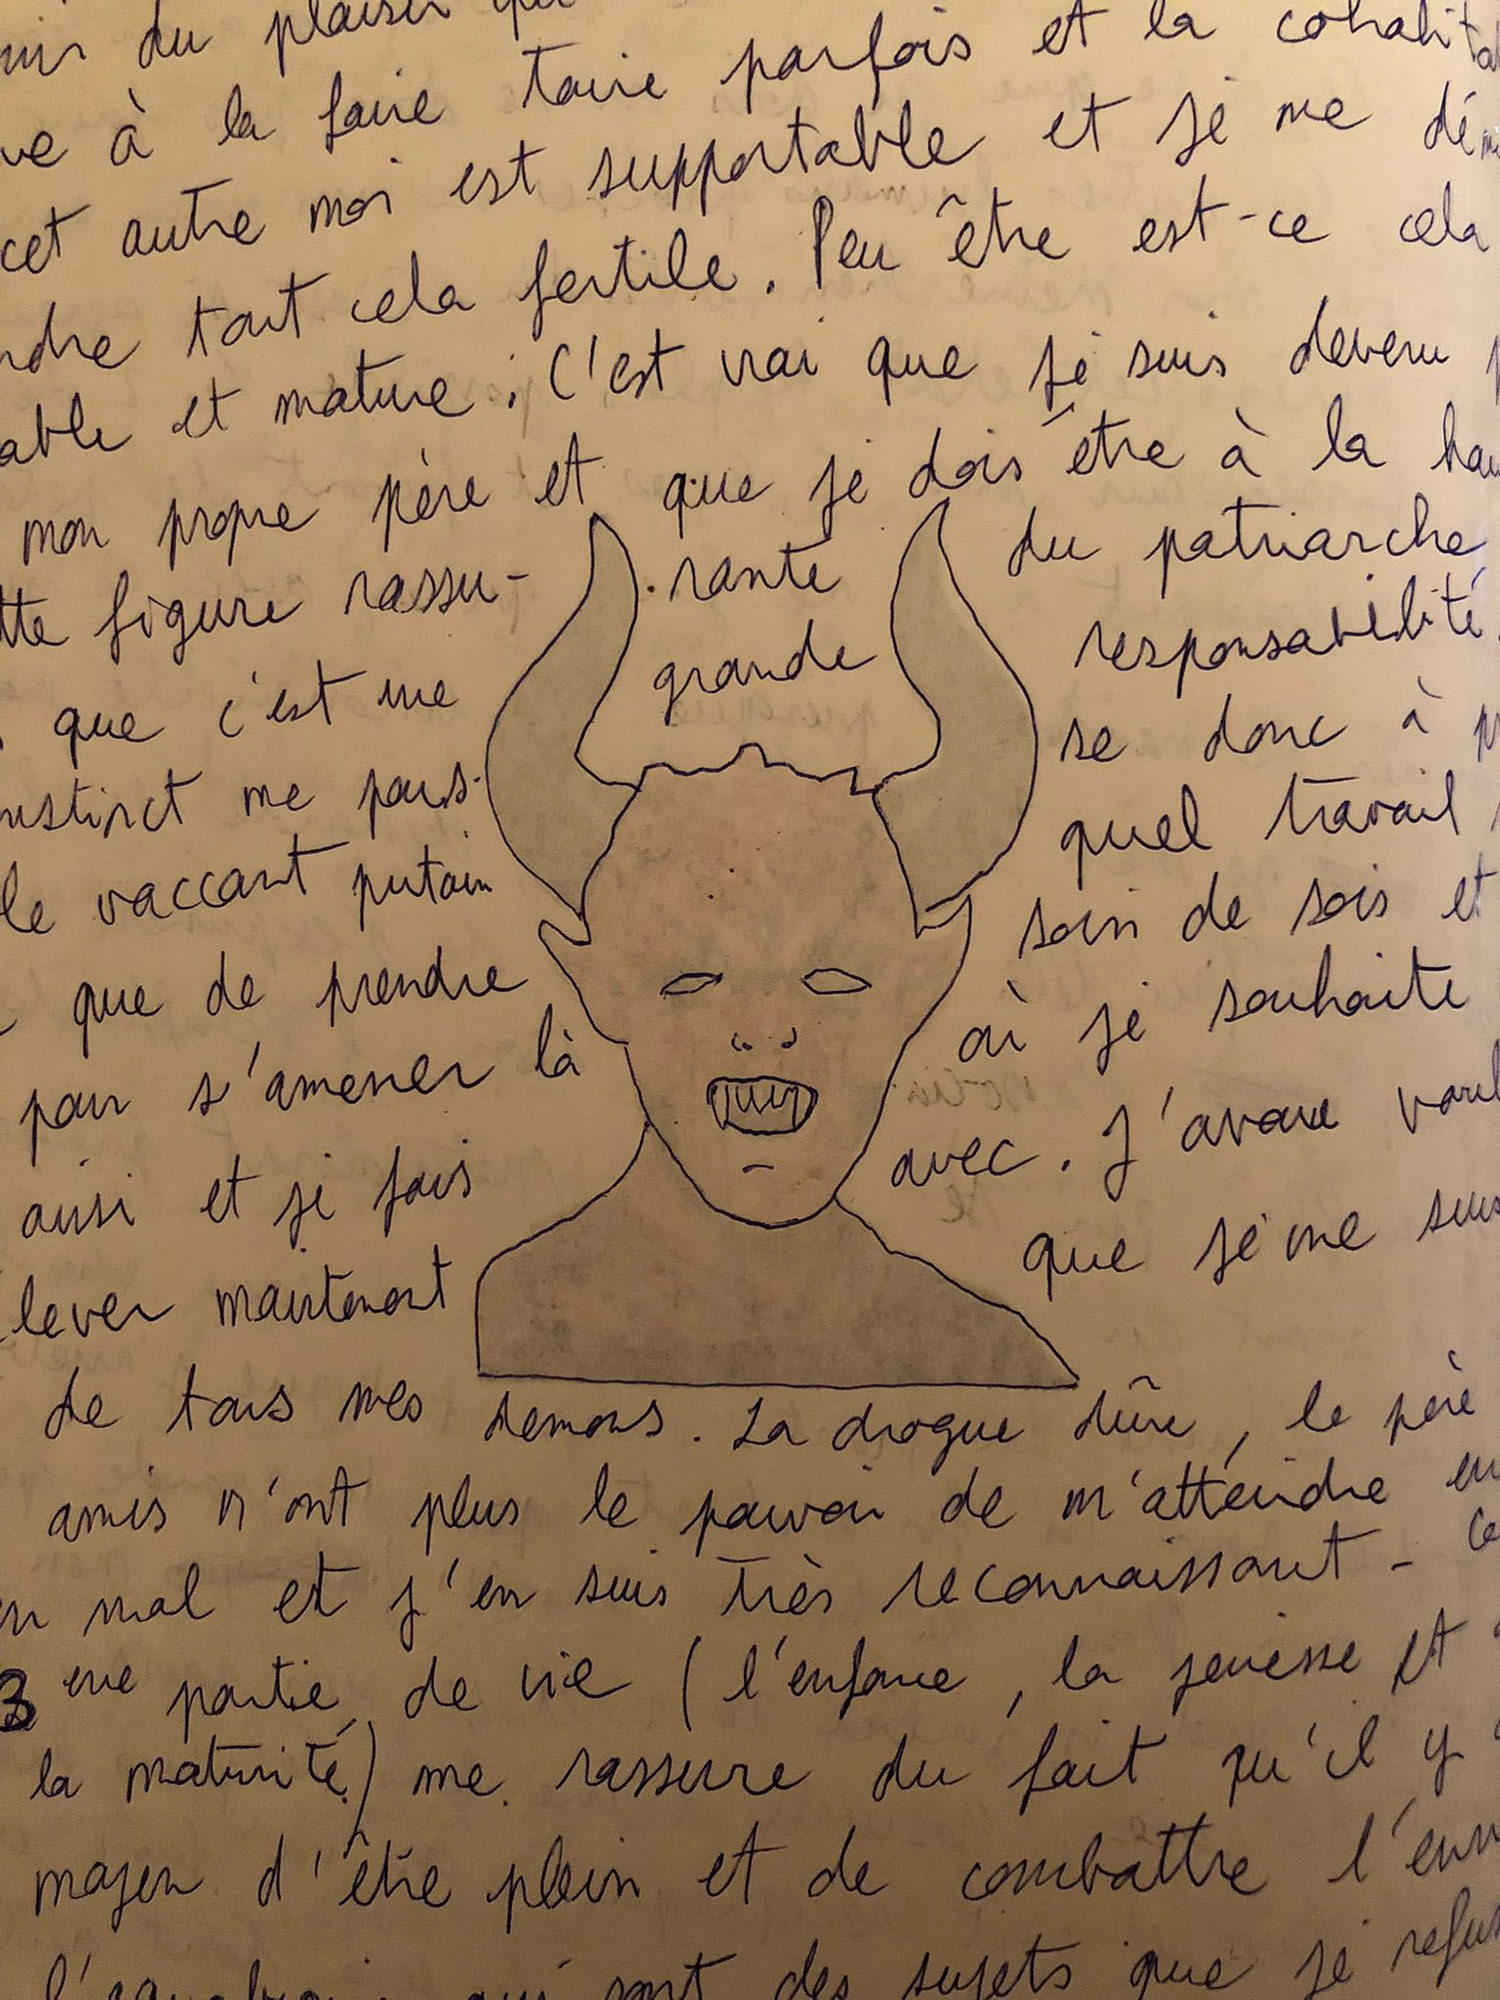 du plaisir qu
ve à la faire taire parfois et la cohabita
cet autre moi est supportable et je me dém
ndre tout cela fertile. Peu être est-ce cela
able et mature. C'est vrai que je suis devenu
mon propre père et que je dois être à la hau
tte figure rassu- rante du patriarche
que c'est une grande responsabilité.
instinct me pous- se donc à p
le vaccant putain quel travail
que de prendre soin de sois et
pour s'amener là où je souhaite
ainsi et je fais avec. J'avoue voul
lever maintenant que je me suis
de tous mes demons. La drogue dûre, le père
amis n'ont plus le pouvoir de m'atteindre en
en mal et j'en suis très reconnaissant - Ce
3 eme partie de vie (l'enfance, la jeunesse et
la maturité) me rassure du fait qu'il y
moyen d'être plein et de combattre l'enn
qui sont des sujets que je refus